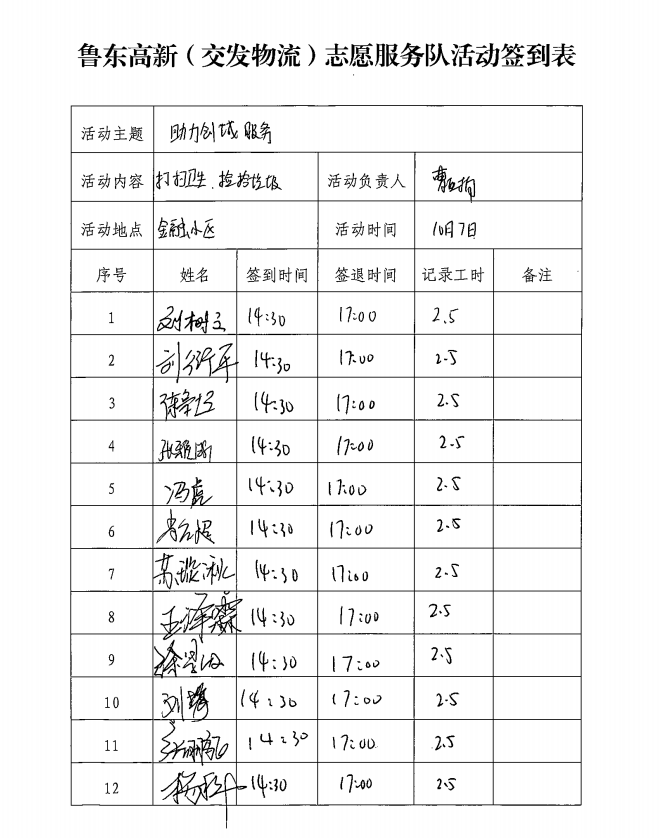 鲁东高新（交发物流）志愿服务队活动签到表
活动主题 助力创城服务
活动内容 打扫卫生、捡拾垃圾 活动负责人
活动地点 金融小区 活动时间 10月7日
序号 姓名 签到时间 签退时间 记录工时 备注
1 14:30 17:00 2.5
2 14:30 17:00 2.5
3 14:30 17:00 2.5
4 14:30 17:00 2.5
5 冯虎 14:30 17:00 2.5
6 14:30 17:00 2.5
7 14:30 17:00 2.5
8 王泽霖 14:30 17:00 2.5
9 14:30 17:00 2.5
10 14:30 17:00 2.5
11 14:30 17:00 2.5
12 14:30 17:00 2.5